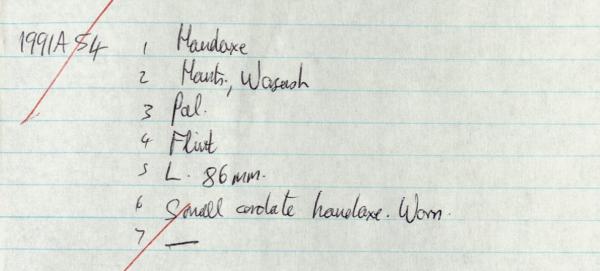 1991A 54 1 Handaxe
2 Hants; Warsash
3 Pal.
4 Flint
5 L. 86mm.
6 Small cordate handaxe. Worn.
7 —